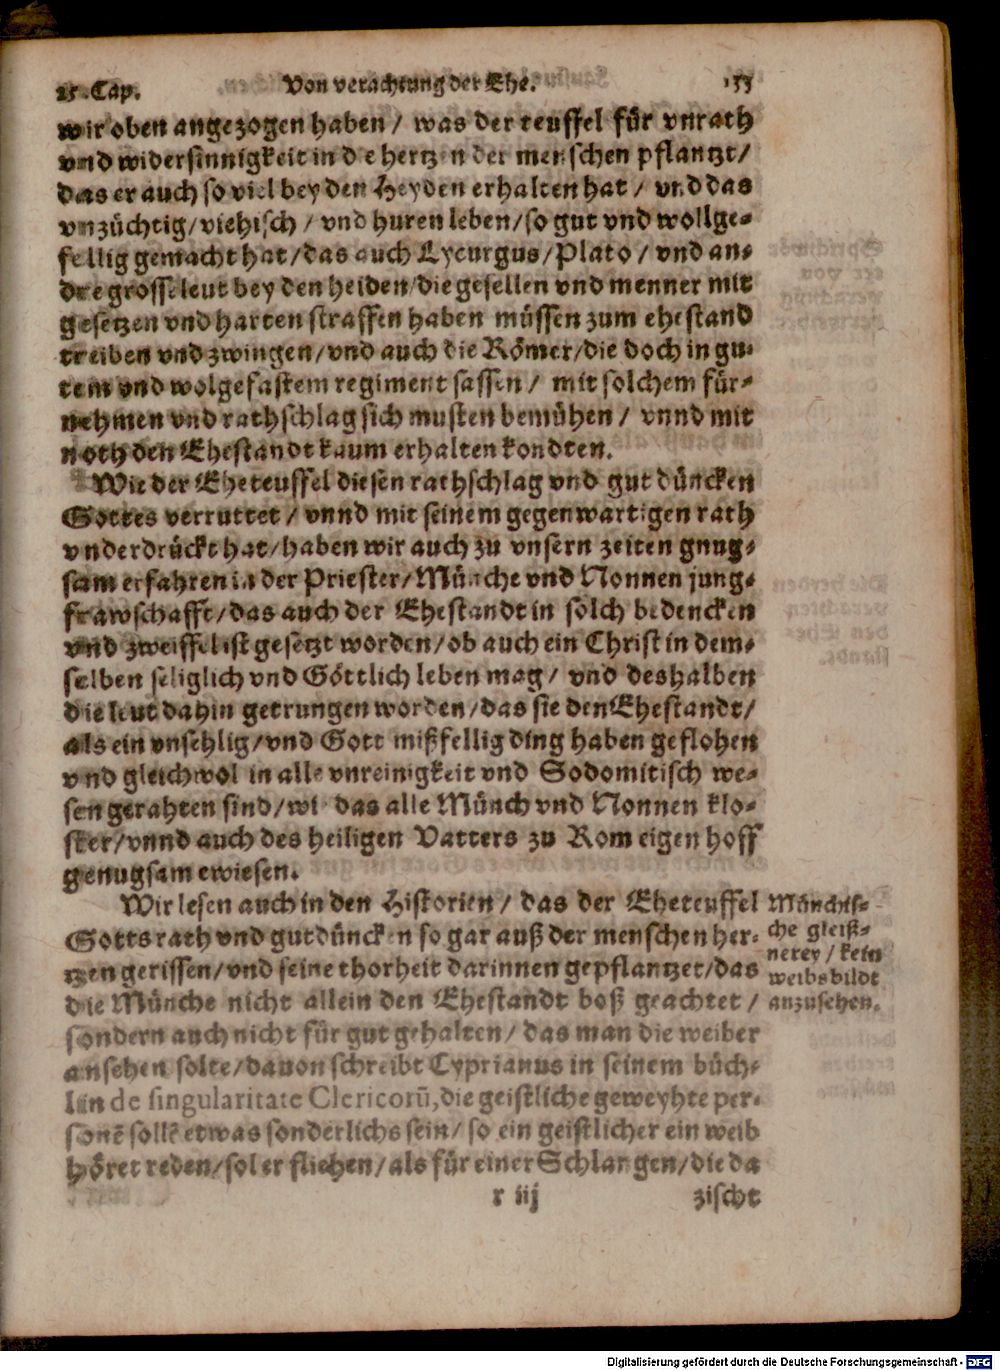 25. Cap. Von verachtung der Ehe. 133
wir oben angezogen haben / was der teuffel für vnrath
vnd widersinnigkeit in die hertzen der menschen pflantzt /
das er auch so viel bey den Heyden erhalten hat / vnd das
vnzüchtig / viehisch / vnd huren leben / so gut vnd wollge-
fellig gemacht hat / das auch Lycurgus / Plato / vnd an-
dre grosse leut bey den heiden / die gesellen vnd menner mit
gesetzen vnd harten straffen haben müssen zum ehestand
treiben vnd zwingen / vnd auch die Römer / die doch in gu-
tem vnd wolgefastem regiment sassen / mit solchem für-
nehmen vnd rathschlag sich musten bemühen / vnnd mit
noth den Ehestandt kaum erhalten kondten.
Wie der Eheteuffel diesen rathschlag vnd gut düncken
Gottes verruttet / vnnd mit seinem gegenwartigen rath
vnderdrückt hat / haben wir auch zu vnsern zeiten gnug-
sam erfahren in der Priester / Münche vnd Nonnen jung-
frawschafft / das auch der Ehestandt in solch bedencken
vnd zweiffel ist gesetzt worden / ob auch ein Christ in dem-
selben seliglich vnd Göttlich leben mag / vnd deshalben
die leut dahin getrungen worden / das sie den Ehestandt /
als ein vnsehlig / vnd Gott mißfellig ding haben geflohen
vnd gleichwol in alle vnreinigkeit vnd Sodomitisch we-
sen gerahten sind / wie das alle Münch vnd Nonnen klo-
ster / vnnd auch des heiligen Vatters zu Rom eigen hoff
genugsam ewiesen.
Wir lesen auch in den Historien / das der Eheteuffel
Gotts rath vnd gutdüncken so gar auß der menschen her-
tzen gerissen / vnd seine thorheit darinnen gepflantzet / das
die Münche nicht allein den Ehestandt boß geachtet /
sondern auch nicht für gut gehalten / das man die weiber
ansehen solte / dauon schreibt Cyprianus in seinem büch-
lin de singularitate Clericorū, die geistliche geweyhte per-
sonē sollē etwas sonderlichs sein / so ein geistlicher ein weib
höret reden / sol er fliehen / als für einer Schlangen / die da
r iij zischt
Münchis-
che gleiß-
nerey / kein
weibsbildt
anzusehen.
Digitalisierung gefördert durch die Deutsche Forschungsgemeinschaft - DFG